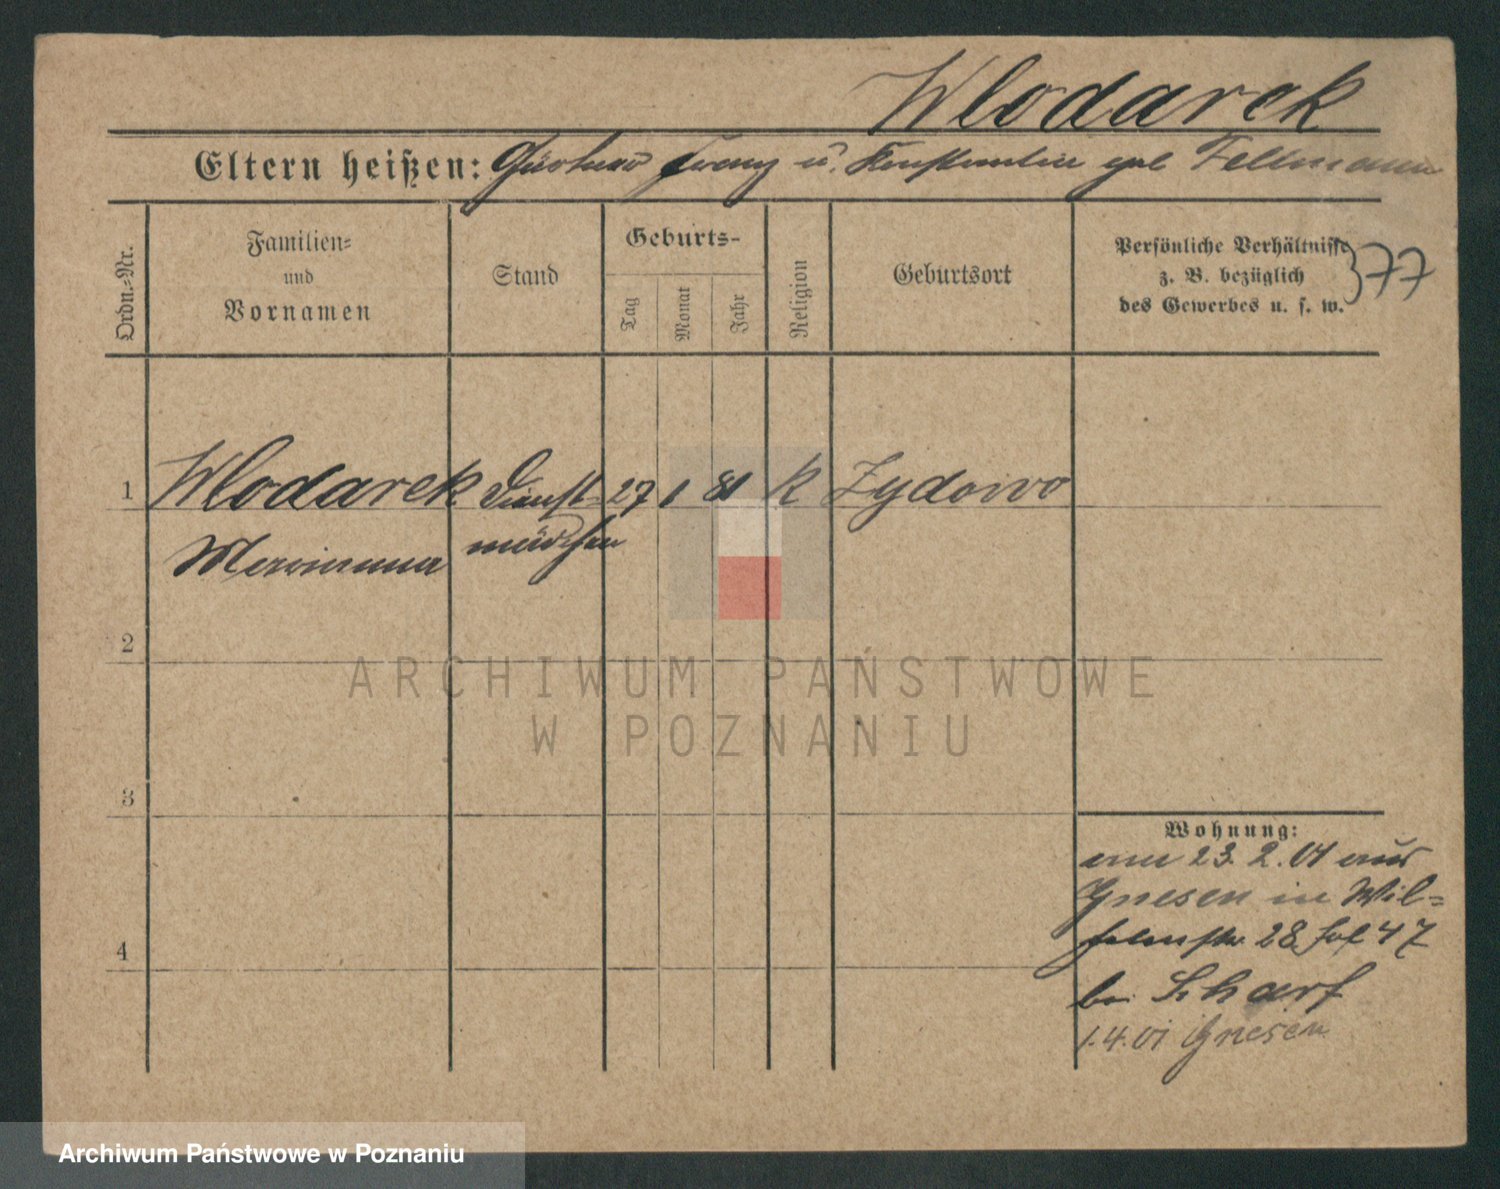 Wlodarek
Eltern heißen: Franz u. Konstantia geb. Fellmann
Ordn.-Nr.
Familien-
und
Vornamen
Stand
Geburts-
Tag
Monat
Jahr
Religion
Geburtsort
Persönliche Verhältnisse
z. B. bezüglich
des Gewerbes u. s. w.
377
1 Wlodarek Dienst- 27 1 81 K Zydowo
Marianna mädchen
2
3
4
Wohnung:
am 23. 2. 01 aus
Gnesen in Wil-
helmstr. 28 47
bei Scharf
1.4.01 Gnesen
ARCHIWUM PAŃSTWOWE
W POZNANIU
Archiwum Państwowe w Poznaniu